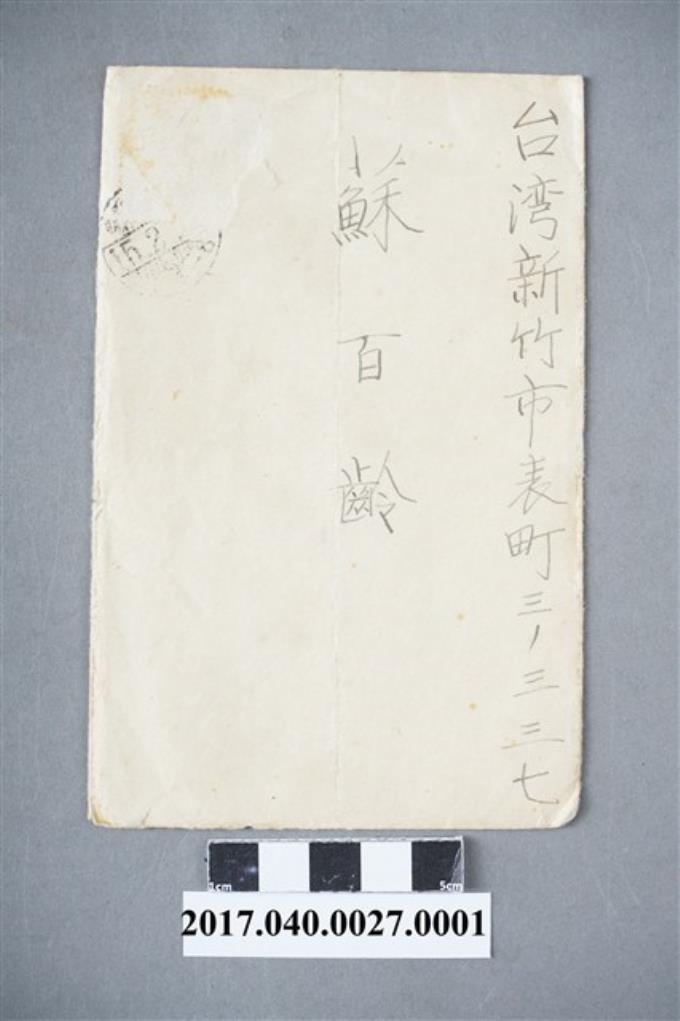 台湾新竹市表町三ノ三三七
蘇百齡
15.2
1cm
5cm
2017.040.0027.0001